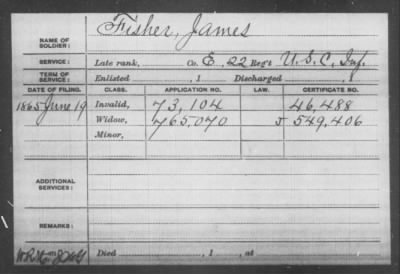 NAME OF SOLDIER: Fisher, James
SERVICE: Late rank, Co. E, 22 Reg't U.S.C. Inf.
TERM OF SERVICE: Enlisted , 1 Discharged , 1
DATE OF FILING. CLASS. APPLICATION NO. LAW. CERTIFICATE NO.
1865 June 19 Invalid, 73,104 46,488
Widow, 765,070 J 549,406
Minor,
ADDITIONAL SERVICES:
REMARKS:
Died , 1 , at